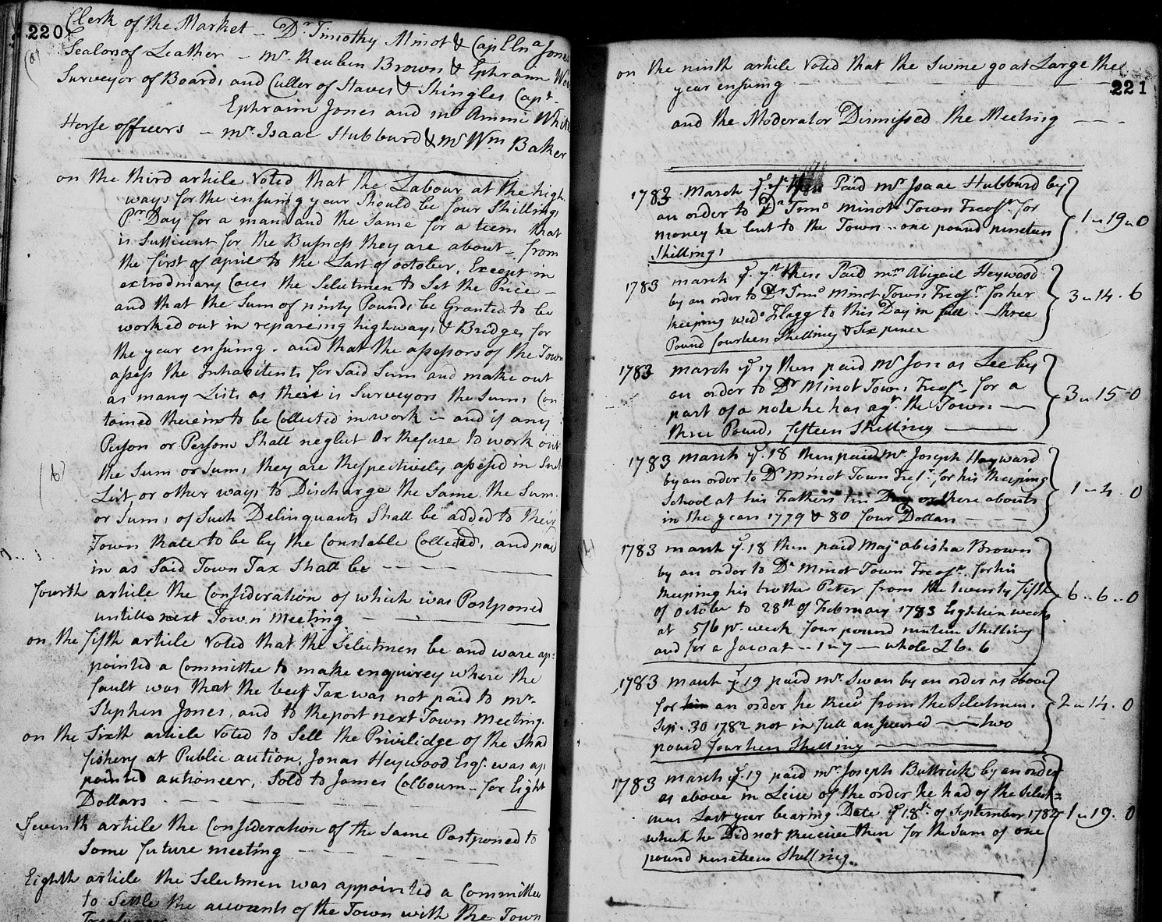 220
Clerk of the Market - Dr Timothy Minot & Cap Elna Jones
(a)
Sealors of Leather - mr Reuben Brown & Ephraim
Surveyor of Boards and Culler of Staves & Shingles Capt
Ephraim Jones and mr Ammi White
Horse officers - mr Isaac Hubburd & mr Wm Baker
on the third article Voted that the Labour at the high
ways for the ensuing year should be four Shillings
Pr Day for a man and the Same for a teem that
is Sufficent for the Busness they are about - from
the first of april to the Last of october, Except in
extrodinary Cases the Selectmen to Set the Price -
and that the Sum of ninty Pounds be Granted to be
worked out in repareing highways & Bridges for
the year ensuing. and that the assessors of the Town
assess the Inhabitents for Said Sum and make out
as many Lists as their is Surveyors the Sums Con
tained therein to be Collected in work - and if any
Person or Persons Shall neglect Or Refuse to work out
the Sum or Sums they are Respectively assessed in
(b)
List or other ways to Discharge the Same, the Sum
or Sums of Such Delinquants Shall be added to their
Town Rate to be by the Constable Collected, and paid
in as Said Town Tax Shall be
fourth article the Consideration of which was Postponed
untill next Town meeting
on the fifth article Voted that the Selectmen be and ware ap:
pointed a Committee to make enquirey where the
fault was that the beef Tax was not paid to mr
Stephen Jones, and to Report next Town Meeting.
on the Sixth article Voted to Sell the Privilidge of the Shad
fishery at Public aution, Jonas Heywood Esqr. was ap
pointed autioneer, Sold to James Colbourn - for Eight
Dollars
Seventh article the Consideration of the Same Postponed to
Some future meeting
Eighth article the Selectmen was appointed a Committee
to Settle the accounts of the Town with the Town
Treasurer
on the ninth article Voted that the Swine go at Large the
year ensuing
221
and the Moderator Dismissed the Meeting
1783 March ye Paid mr Isaac Hubburd by
an order to Dr Timo Minot Town Treasr for
money he lent to the Town - one pound nineteen
Shillings
1 " 19 " 0
1783 march ye then Paid Abigail Heywood
by an order to Dr Timo Minot Town Treasr for her
keeping wido Flagg to this Day in full - three
Pound fourteen Shillings & Six pence
3 " 14 . 6
1783 march ye 17 then paid Mr Jonas Lee by
an order to Dr Minot Town Treasr for a
part of a note he has agt the Town
three Pounds fifteen Shillings
3 " 15 - 0
1783 march ye 18 then paid mr Joseph Hayward
by an order to Dr Minot Town for his Keeping
School at his Fathers or there abouts
in the years 1779 & 80 four Dollars
1 - 4 . 0
1783 march ye 18 then paid Maj abisha Brown
by an order to Dr Minot Town Treasr for his
keeping his brother Peter from the twenty fifth
of october to 28th of February 1783 Eighteen weeks
at 5/6 pr week four pound nineteen Shillings
and for a Jacoat - 1 " 7 - whole £ 6 . 6
6 . . 6 . . 0
1783 march ye 19 paid mr Swan by an order as above
for an order he from the Selectmen
Sep. 30 1782 not in full answered - two
pound fourteen Shillings
2 " 14 . 0
1783 march ye 19 paid mr Joseph Buttrick by an order
as above in Lieu of the order he had of the Select=
men Last year bearing Date ye 18th of September 1782
which he Did not Receive then for the Sum of one
pound nineteen Shillings.
1 " 19 . 0